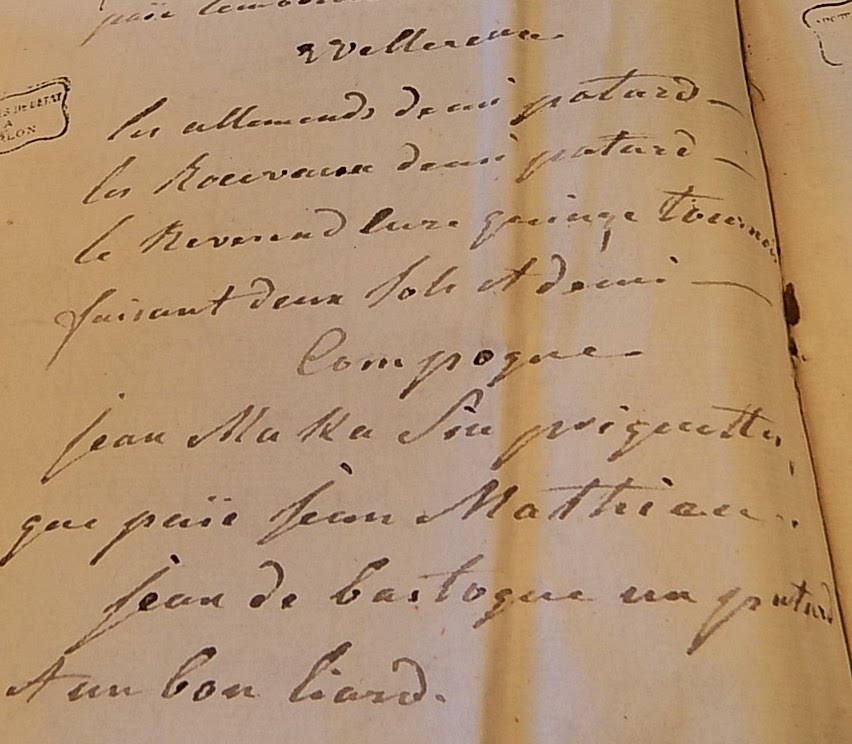 paie
Wellereux
les allemands demi patard
les Rouvaux demi patard
le Reverend Cure quinze tournois
faisant deux sols et demi
Compogne
jean Ma Ka Six priquettes,
que païe jean Mathieu.
jean de bastogne un patard
et un bon liard.